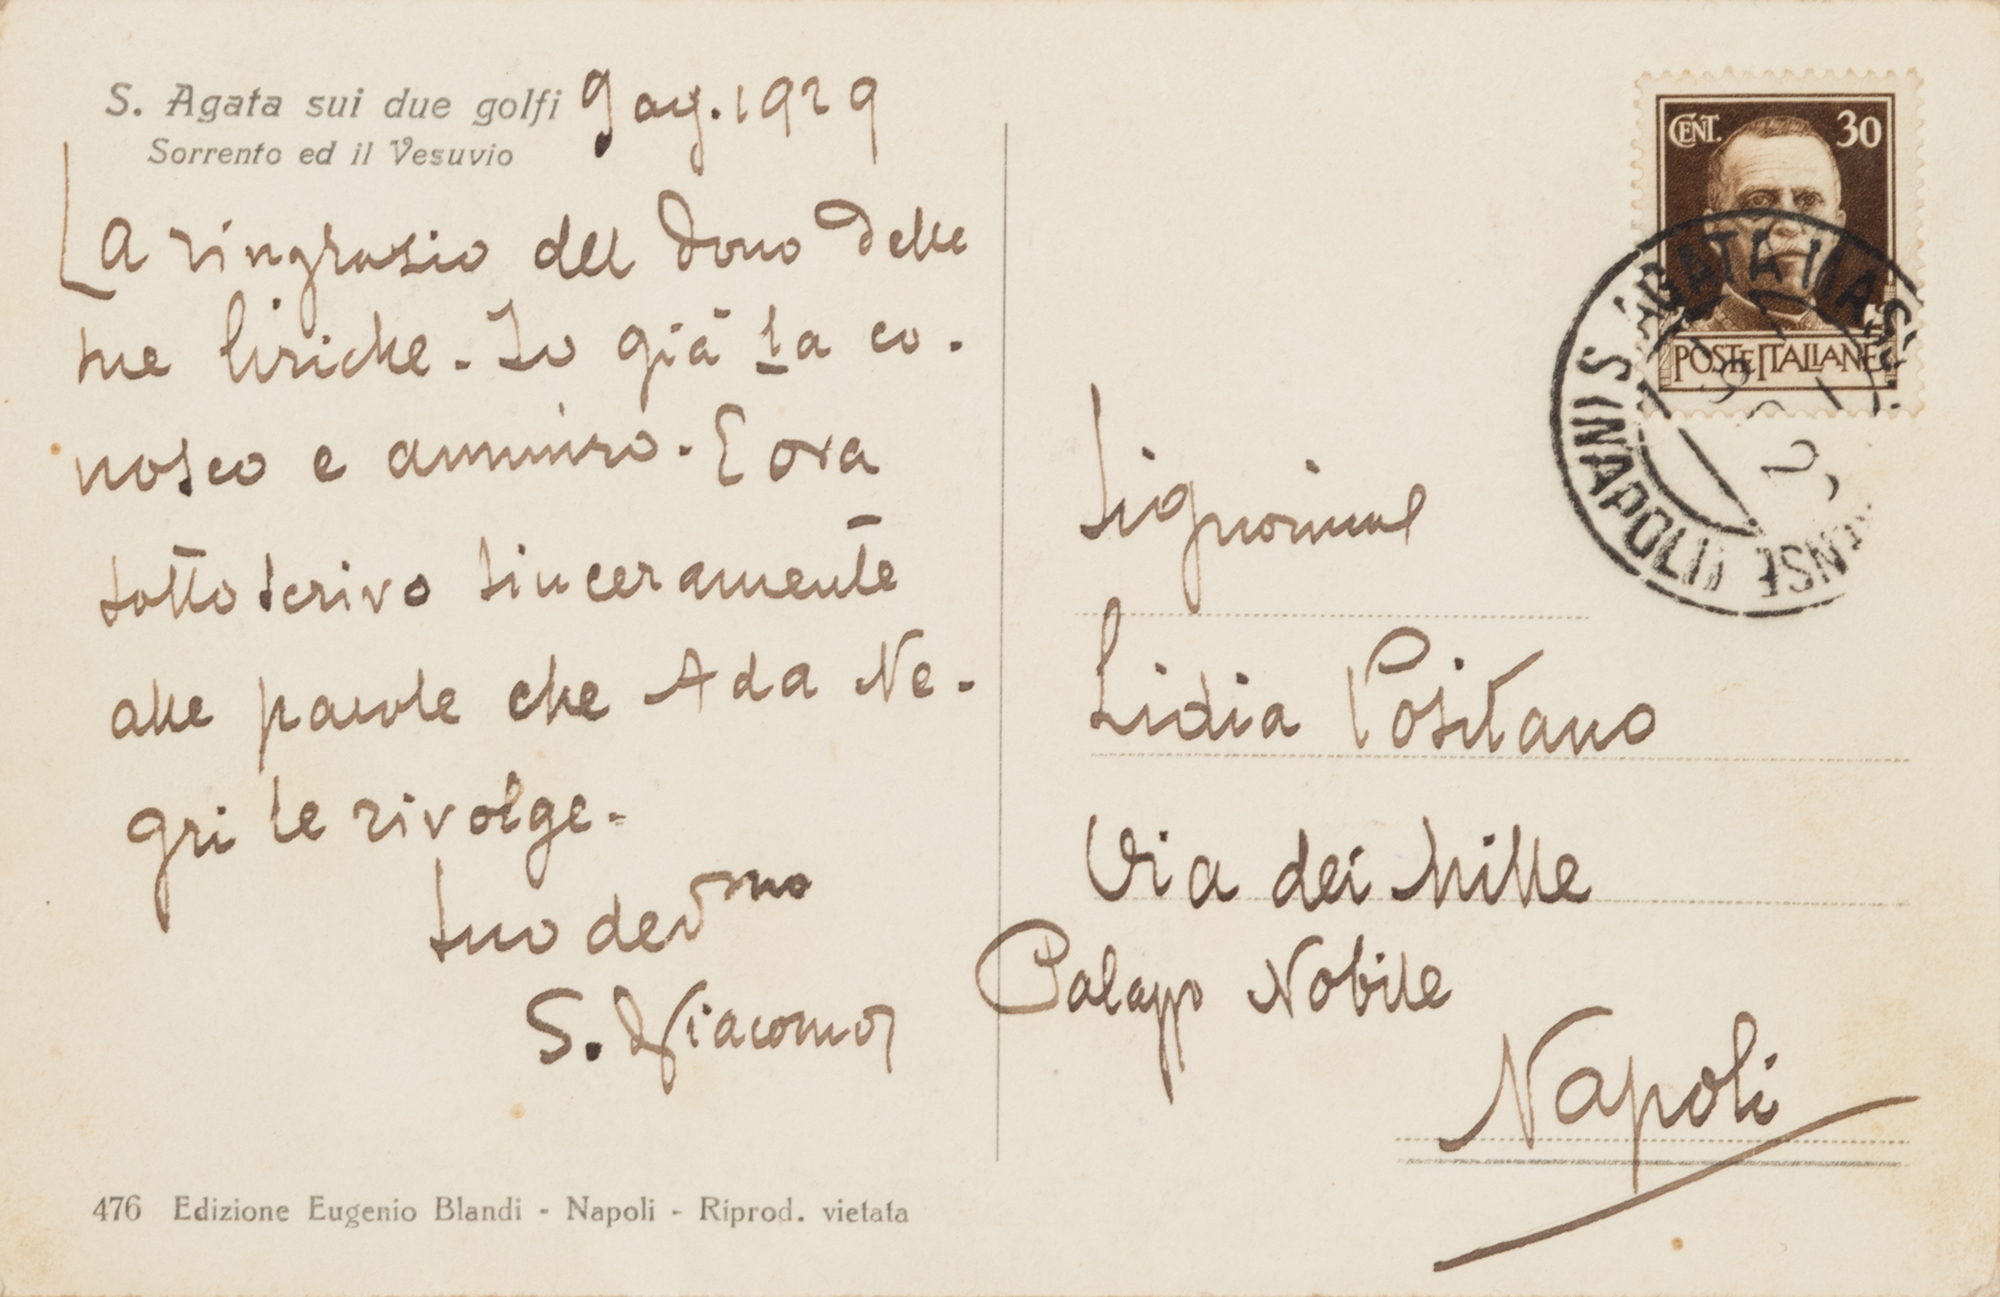 S. Agata sui due golfi 9 ag. 1929
Sorrento ed il Vesuvio
La ringrasio del dono delle
sue liriche - Io già la co-
nosco e ammiro. E ora
sottoscrivo sinceramente
alle parole che Ada Ne-
gri le rivolge.
Suo dev^mo
S. di Giacomo
476 Edizione Eugenio Blandi - Napoli - Riprod. vietata
CENT. 30
POSTE ITALIANE
S. AGATA MASSUBRENSE (NAPOLI)
Signorina
Lidia Positano
Via dei Mille
Palazzo Nobile
Napoli